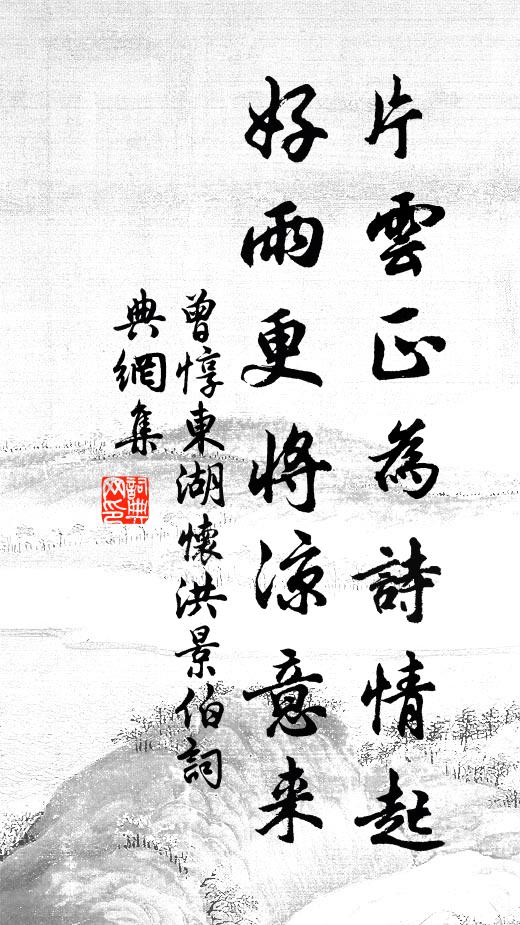 片雲正為詩情起
好雨更將涼意来
曾惇東湖懷洪景伯詞
典網集
詞典網印